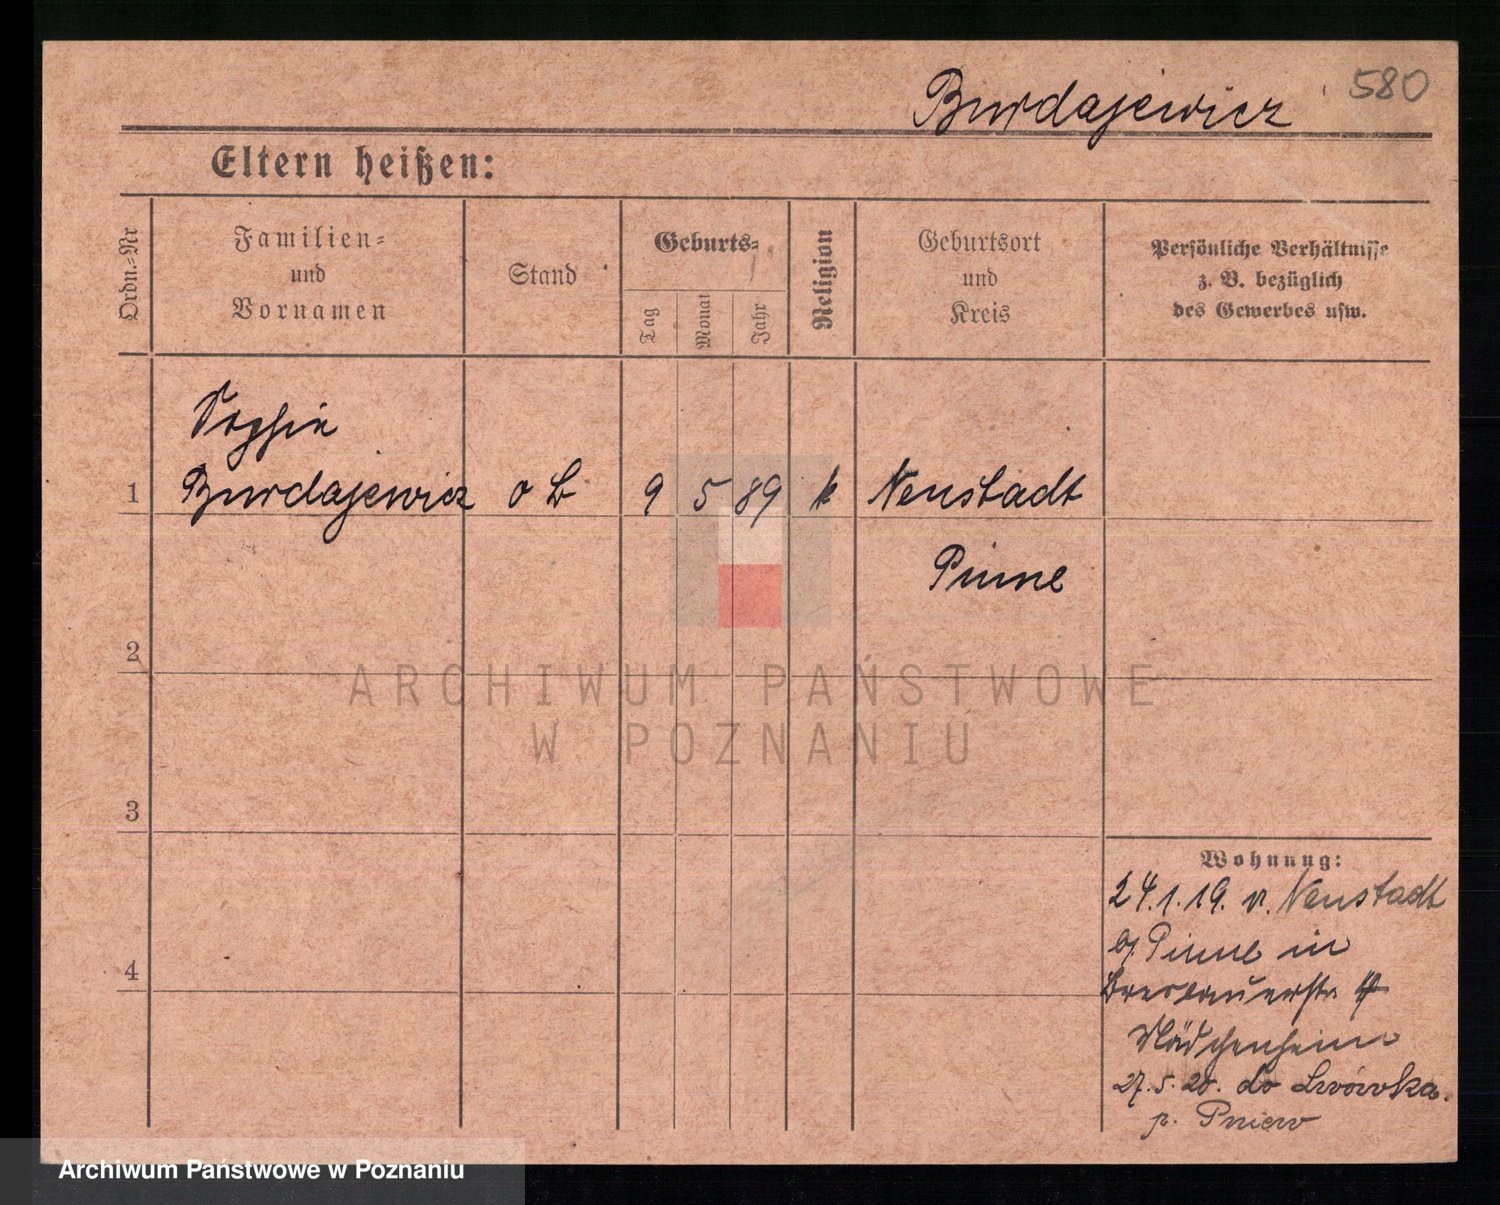 Burdajewicz 580
Eltern heißen:
Ordn.-Nr
Familien-
und
Vornamen
Stand
Geburts-
Tag
Monat
Jahr
Religion
Geburtsort
und
Kreis
Persönliche Verhältnisse
z. B. bezüglich
des Gewerbes usw.
Sophie
1 Burdajewicz o B 9 5 89 k Neustadt
Pinne
2
ARCHIWUM PAŃSTWOWE
W POZNANIU
3
Wohnung:
24.1.19. v. Neustadt
b/ Pinne in
4
Breslauerstr
Mädchenheim
27.5.20. do Lwówka.
p. Pniew
Archiwum Państwowe w Poznaniu